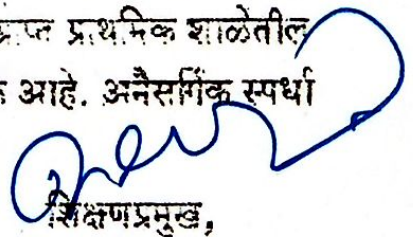 प्राप्त प्राथमिक शाळेतील
आहे. अनैसर्गिक स्पर्धा
शिक्षणप्रमुख,